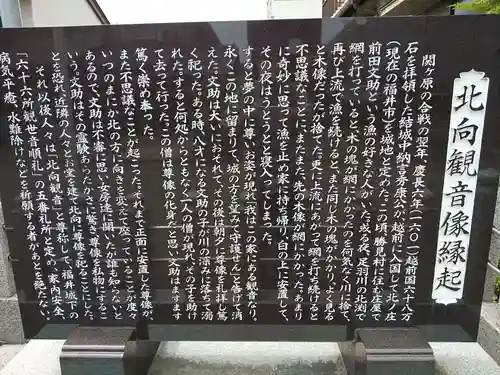 北向観音像縁起
関ヶ原の合戦の翌年、慶長六年(一六〇一)越前国六十八万
石を拝領した結城中納言秀康公が、越前に入国して、北ノ庄
(現在の福井市)を城地と定めたこの頃、勝見村に住む庄屋で
前田文助という漁の好きな人がいた。或る夜、足羽川の北渕で
網を打っていると、木の塊が網にかかったのを何気なく川へ捨て、
再び上流で漁を続けるとまた同じ木の塊がかかり、よく見る
と木像だったが捨てた。更に上流にあがって網を打ち続けると
不思議なことにまたまた、先の木像が網にかかった。あまり
に奇妙に思って漁を止め家に持ち帰り、臼の上に安置して、
その夜はうとうとと寝入ってしまった。
すると夢の中に尊いお姿が現れて「我はこの家にある観音なり、
永くこの地に留まりて、城の方を望みて守護せん」と告げて消
えた。文助は大いにおそれて、その後は朝夕に尊像を礼拝し篤
く祀った。ある時、八才になる文助の子が川の深みに落ちて溺
れた。すると何処からともなく一人の僧が現れ、その子を助け
て去って行った。この僧は尊像の化身だと思い文助はますます
篤く崇め奉った。
また不思議なことが起こった。それまで正面に安置した尊像が、
いつのまにか北の方に向きを変えて座っていることが度々
あるので、文助は不審に思い女房達に聞いたが誰も知らないと
いう。文助はその霊験あらたかさに驚き尊像を私物とするこ
とを恐れ、近隣の人々とお堂を建て北向に尊像を祀ることにした。
それ以後、人々は「北向観音」と尊称して、福井城下の
「六十六所観世音順礼」の五番札所と定め、家内安全、
病気平癒、水難除けなどを祈願する者があとを絶たない。